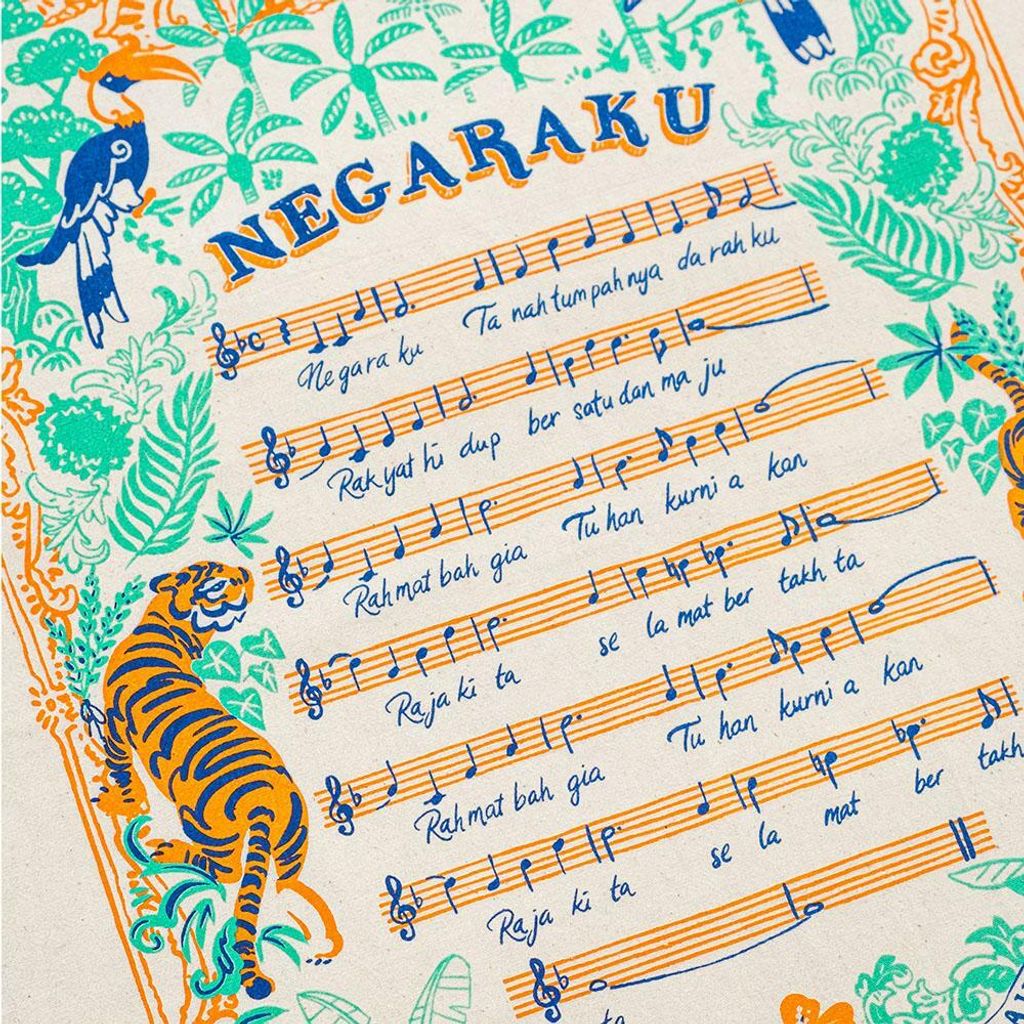 NEGARAKU
Negara ku Ta nah tum pah nya da rah ku
Rak yat hi dup ber satu dan ma ju
Rah mat bah gia Tu han kurni a kan
Raja ki ta se la mat ber takh ta
Rah mat bah gia Tu han kurni a kan
Raja ki ta se la mat ber takh
ta